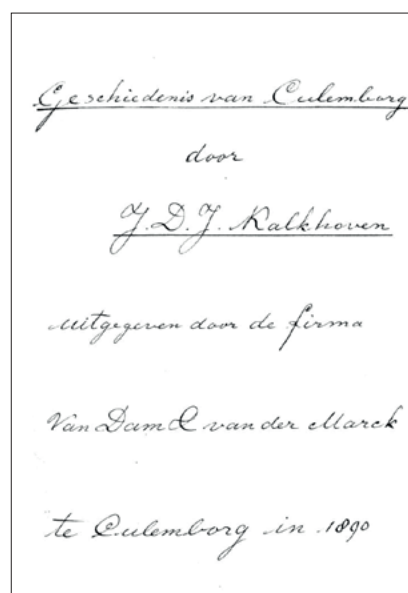 Geschiedenis van Culemborg
door
J. D. J. Kalkhoven
uitgegeven door de firma
Van Dam & van der Marck
te Culemborg in 1890